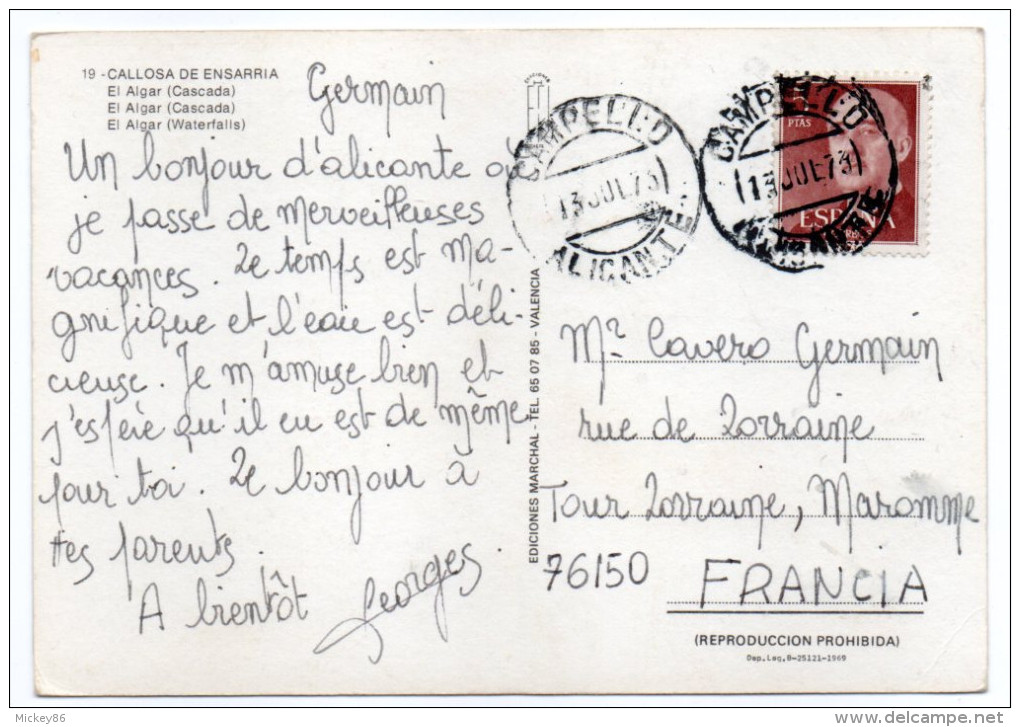 19 -CALLOSA DE ENSARRIA
El Algar (Cascada)
El Algar (Cascada)
El Algar (Waterfalls)
Germain
Un bonjour d'alicante où
je passe de merveilleuses
vacances. Le temps est ma-
gnifique et l'eau est déli-
cieuse. Je m'amuse bien et
j'espère qu'il en est de même
pour toi. Le bonjour à
tes parents.
A bientôt Georges.
EDICIONES MARCHAL - TEL. 65 07 85 - VALENCIA
CAMPELLO
13 JUL 73
ALICANTE
CAMPELLO
13 JUL 73
ALICANTE
PTAS
ESPAÑA
Mr. Cavero Germain
rue de Lorraine
Tour Lorraine, Maromme
76150 FRANCIA
(REPRODUCCION PROHIBIDA)
Dep.Leg,B-25121-1969
Mickey86